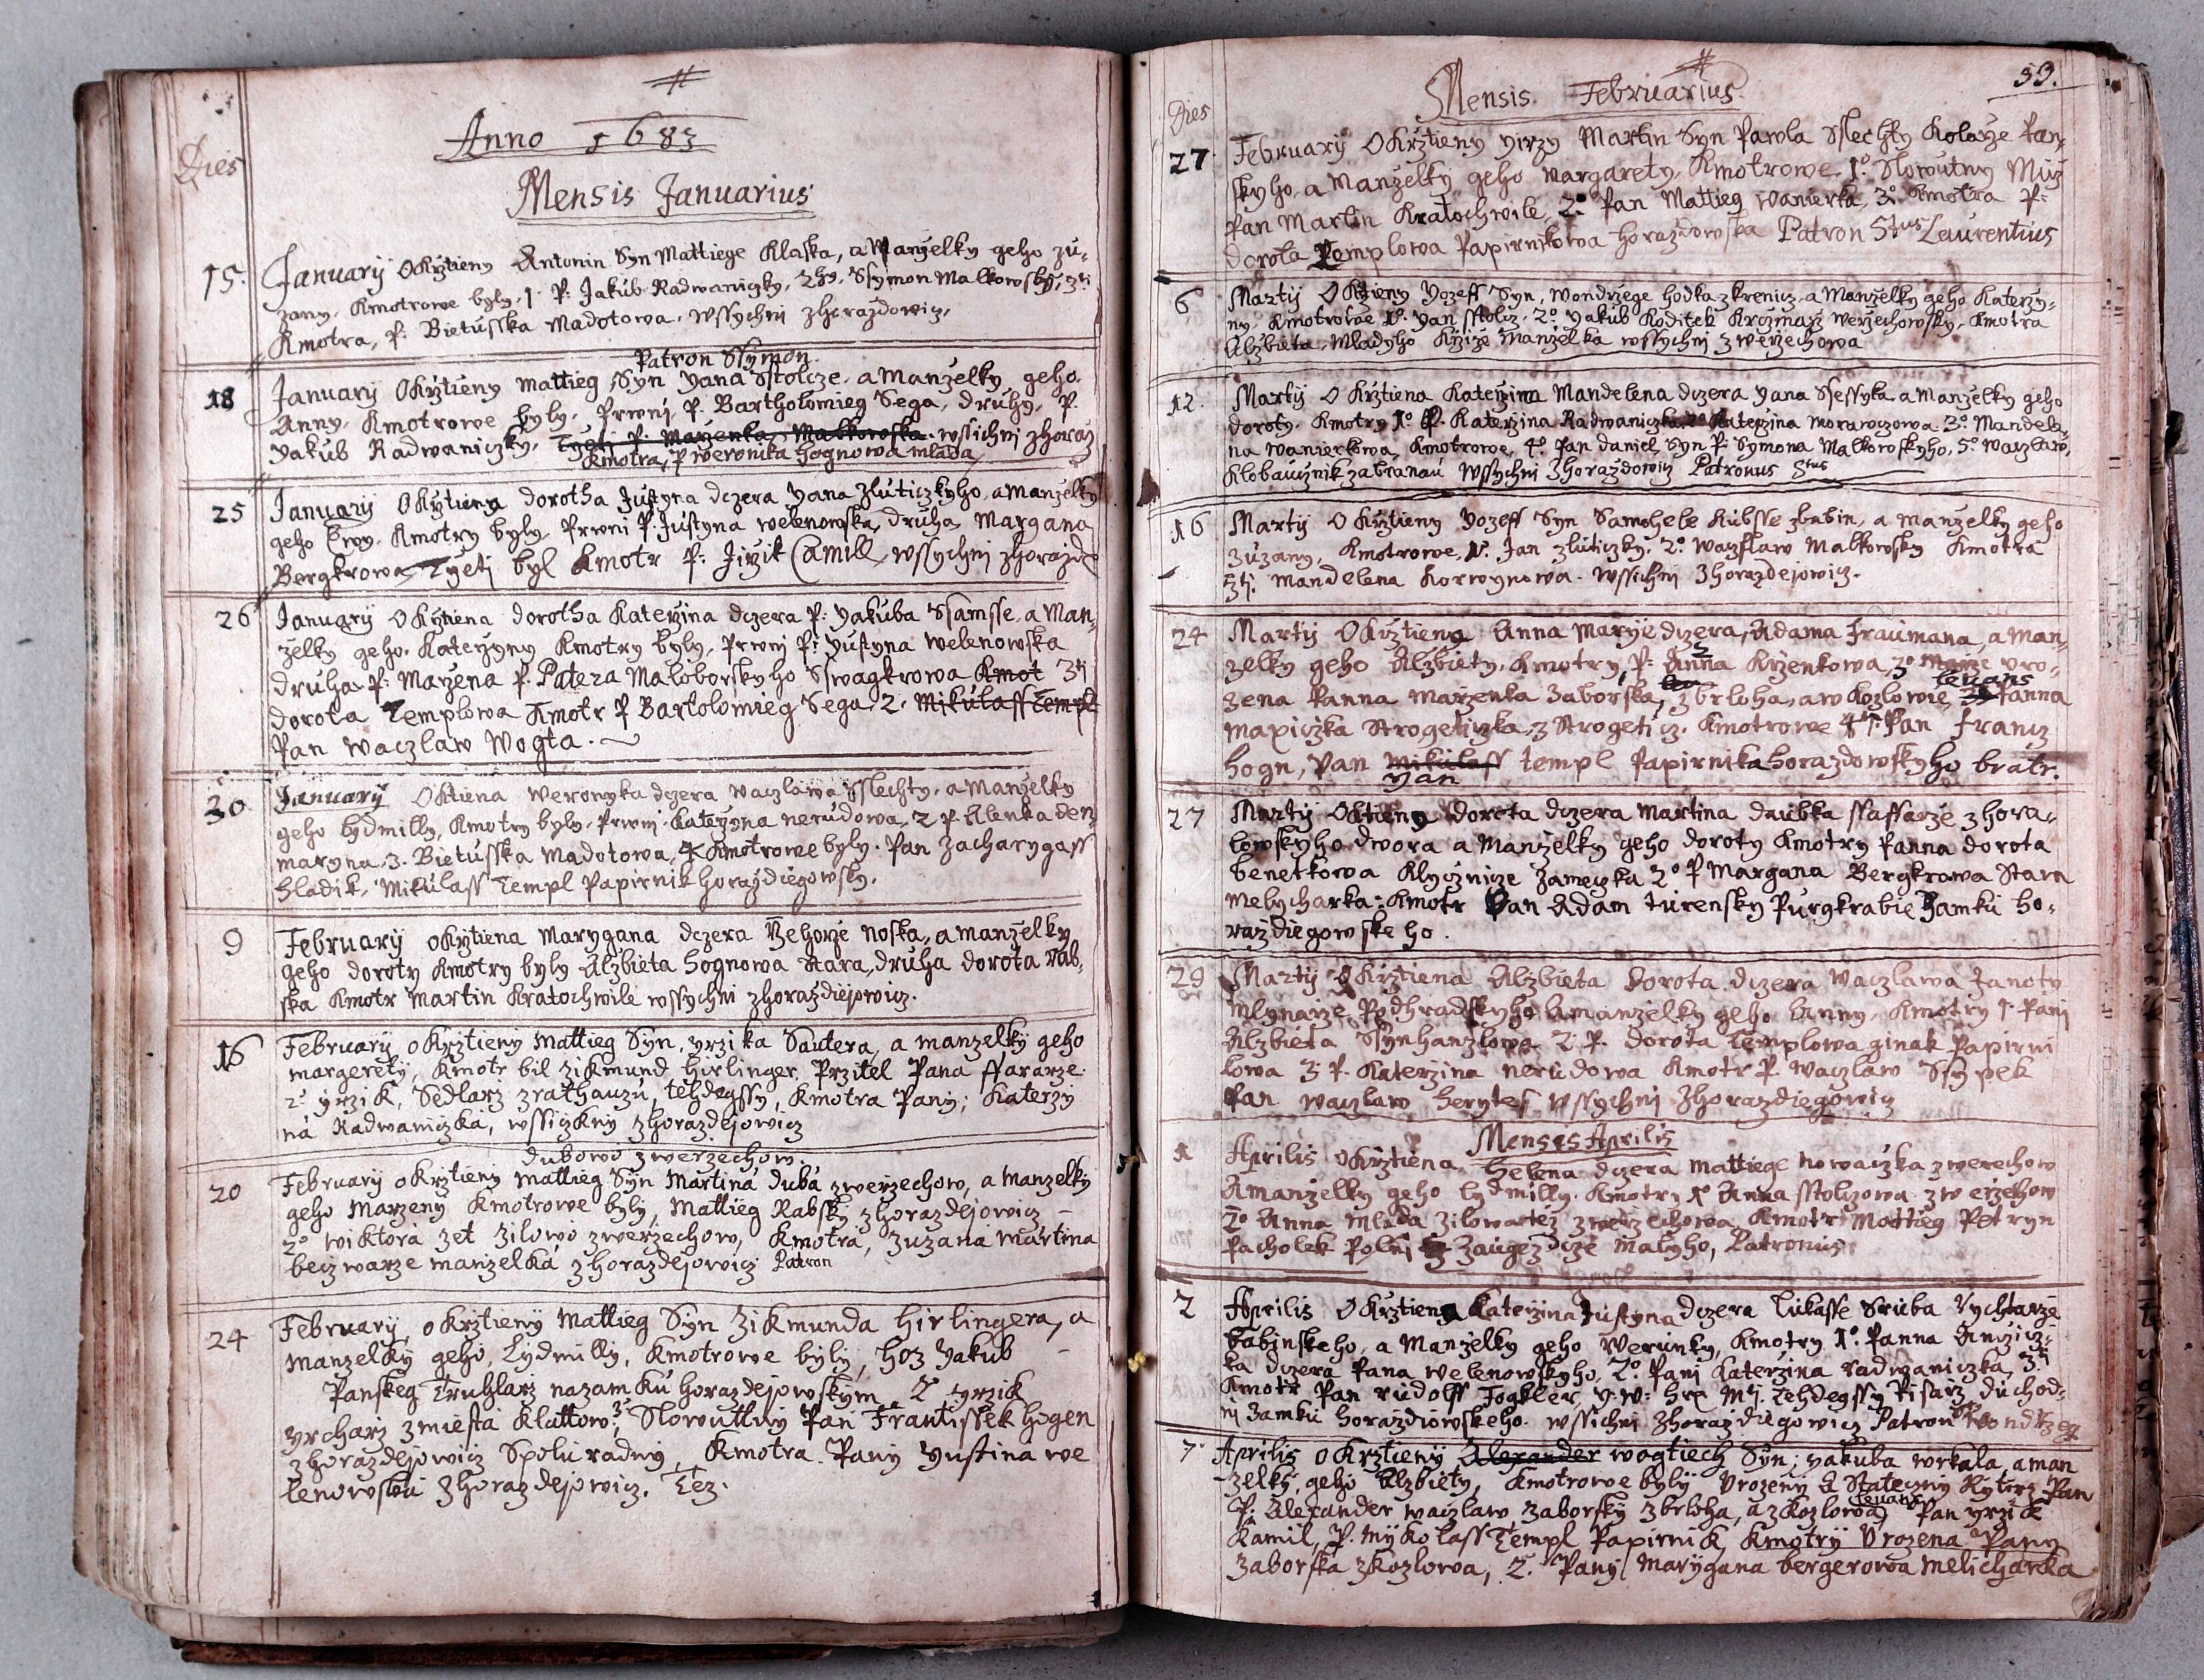 Anno 1683
Dies
Mensis Januarius
15. Januarij Okrztieny Antonin Syn Mattiege Klaska, a Manzelky geho zu,
zany. Kmotrowe byly, 1. P: Jakub Radwaniczky, 2hy, Ssymon Malkowsky, 3ti
Kmotra, P: Bietusska Madotowa, wssychni zhorazdowicz,
Patron Ssymon
18 Januarij Okrztieny Mattieg Syn Yana Sstolcze, a Manzelky geho.
Anny, Kmotrowe byly, Prwni, P. Bartholomieg Sega, druhy, P.
Yakub Radwaniczky, P. Maryenka Malkowska, wssichni zhoraz
Kmotra, P weronika hognowa mlada
25 Januarij Okrztiena dorotha Justyna dczera Yana Zluticzkyho, a Manzelky
geho Ewy, Kmotry byly, Prwni P. Justyna welenowska, druha Margana
Bergkrowa, Trzeti byl Kmotr P: Jirzik Camill, wssychni zhorazd
26 Januarij Okrztiena dorotha Katerzina dczera P: Yakuba Ssamsse, a Man,
zelky geho, Katerzyny Kmotry byly, Prwni P: Yustyna Welenowska
druha P: Maryena P. Patera Maloborskyho Sswagkrowa Kmot 3ti
dorota Templowa Kmotr P Bartolomieg Sega, 2. Mikulass Templ
Pan Waczlaw Wogta.
30 Januarij Oktiena Weronyka dczera Waczlawa Sslechty, a Manzelky
geho Lydmilly, Kmotry byly, Prwni Katerzyna nerudowa, 2 P. Alenka den
maryna, 3. Bietusska Madotowa, 4 Kmotrowe byly. Pan Zacharygass
hladik, Mikulass Templ Papirnik horazdiegowsky.
9 Februarij okrztiena Marygana dczera Rzehorze Noska, a manzelky
geho doroty Kmotry byly Alzbieta hognowa stara, druha dorota rab,
ska Kmotr Martin Kratochwile wssychni zhorazdiejowicz.
16 Februarij okrztieny Mattieg Syn, yrzika Sautera, a manzelky geho
margerety, Kmotr bil zikmund hirlinger, Przitel Pana ffararze.
2° yrzik, Sedlarz zrathauzu, tehdegssy, Kmotra Pany; Katerzy
na Radwaniczka, wssiczkny zhorazdejowicz
dubowo zwerzechow.
20 Februarij okrztieny mattieg Syn Martina duba zwerzechow, a manzelky
geho Marzeny Kmotrowe byly, Mattieg Rabsky zhorazdejowicz
2° wiktora zet zilowo zwerzechow, Kmotra, zuzana martina
beczwarze manzelka zhorazdejowicz Patron
24 February, okrztieny Mattieg Syn Zikmunda hirlingera, a
manzelky geho, Lydmilly, Kmotrowe byly, hoz Yakub
Panskeg Truhlarz nazamku horazdejowskym, 2° yrzik
yrcharz zmiesta Klattow, 3 Slowutny Pan Frantissek hogen
zhorazdejowicz Spolu radny, Kmotra Pany Yustina we
lenowska zhorazdejowicz. Tez.
59.
Mensis Februarius
Dies
27 Februarij Okrztieny yirzy Martin Syn Pawla Sslechty Kolarze Pan,
skyho, a Manzelky geho Margarety, Kmotrowe 1° Slowutny Muz
Pan Martin Kratochwile, 2° Pan Mattieg Wanierka, 3° Kmotra P:
dorota Templowa Papirnikowa horazdowska Patron Stus Laurentius
6 Martij Okrztieny Yozeff Syn, Wondrzege hodka zkrenicz, a Manzelky geho Katerzy,
ny, Kmotrowe 1°. Yan Sstolcz, 2° Yakub Koditek Krczmarz werzechowsky, Kmotra
Alzbieta, Mladyho Krzize Manzelka wssychni zwerzechowa
12. Martij Okrztiena Katerzina Mandelena dczera Yana Ssessyka, a Manzelky geho
doroty, Kmotry 1° P. Katerzina Radwaniczka 2° Katerzina Morawczowa 3° Mandele,
na Wanierkowa, Kmotrowe, 4° Pan daniel Syn P: Symona Malkowskyho, 5° Waczlaw,
Klobaucznik zabranau Wssychni zhorazdowicz Patronus Stus
16 Martij Okrztieny Yozeff Syn Samohele Kubsse zbabin, a manzelky geho
zuzany, Kmotrowe, 1°. Jan zluticzky, 2° Waczslaw Malkowsky Kmotra
3ti. Mandelena Korwynowa. Wssichni zhorazdejowicz.
24 Martij Okrztiena Anna Marye dczera, Adama Fraumana, a Man,
zelky geho Alzbiety, Kmotry, P: Anna Krzenkowa, 2° Vro,
zena Panna Maryenka Zaborska, zbrloha, aw Kozlowie, levans Panna
Mariczka Strogeticzka, z Strogeticz. Kmotrowe 4 P. Pan Francz
hogn, Pan Mikulass Templ Papirnika horazdowskyho bratr.
Yan
27 Martij Oktiena Dorota dczera Martina daubka ssaffarze zhora,
lowskyho dwora a Manzelky geho doroty Kmotry Panna dorota
benetkowa Klycznicze Zameczka 2° P Margana Bergkrowa Stara
Melycharka: Kmotr Pan Adam Turensky Purgkrabie Zamku ho,
razdiegowskeho.
29 Martij Okrztiena Alzbieta Dorota dczera Waczlawa Janoty
Mlynarze Podhradskyho Amanzelky geho Anny, Kmotry 1. Pani
Alzbieta Ssynhanzlowa 2. P. Dorota Templowa ginak Papirni
kowa 3. P. Katerzina nerudowa Kmotr P. Waczlaw Ssypek
Pan Waczlaw herytes Wssychni zhorazdiegowicz
Mensis Aprilis
1 Aprilis okrztiena helena dczera mattiege Nowaczka zwerechow
Amanzelky geho lydmilly, Kmotry 1° Anna sstolczowa zwerzechow
2° Anna Mlada zilowatez zwerzechowa Kmotr Mattieg Petryn
Pacholek Polni zaugezdcze malyho, Patronus
2 Aprilis Okrztiena Katerzina Justyna dczera Lukasse Sruba Rychtarze
babinskeho, a Manzelky geho Werunky, Kmotry 1°. Panna Anczicz,
ka dczera Pana Welenowskyho, 2° Pani Katerzina radwaniczka, 3ti
Kmotr Pan rudolff Fogkler, Tehdegssy Pisarz duchod,
ni Zamku horazdiowskeho. Wssichni zhorazdiegowicz Patron Wondrzeg
7 Aprilis okrztieny Alexander wogtiech Syn, yakuba wrkala, aman
zelky geho Alzbiety, Kmotrowe byly Vrozeny A Stateczny Rytirz Pan
P: Alexander waczlaw, zaborsky zbrloha, a zkozlowa, levans Pan yrzik
Kamil, P. Mykolass Templ Papirnik, Kmotry Vrozena Pany
zaborska zkozlowa, 2. Pany Marygana bergerowa melicharka